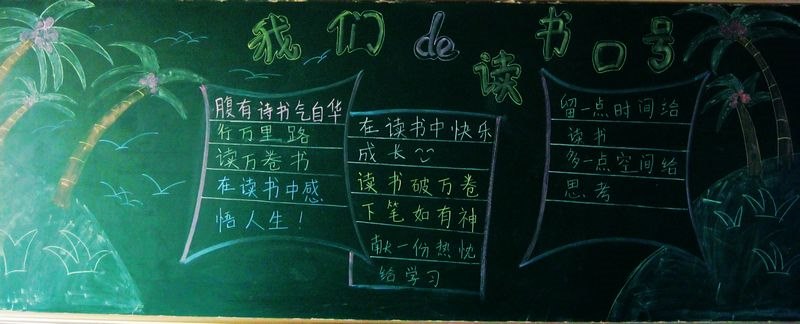 我们de读书口号
腹有诗书气自华
行万里路
读万卷书
在读书中感
悟人生！
在读书中快乐
成长
读书破万卷
下笔如有神
献一份热忱
给学习
留一点时间给
读书
多一点空间给
思考